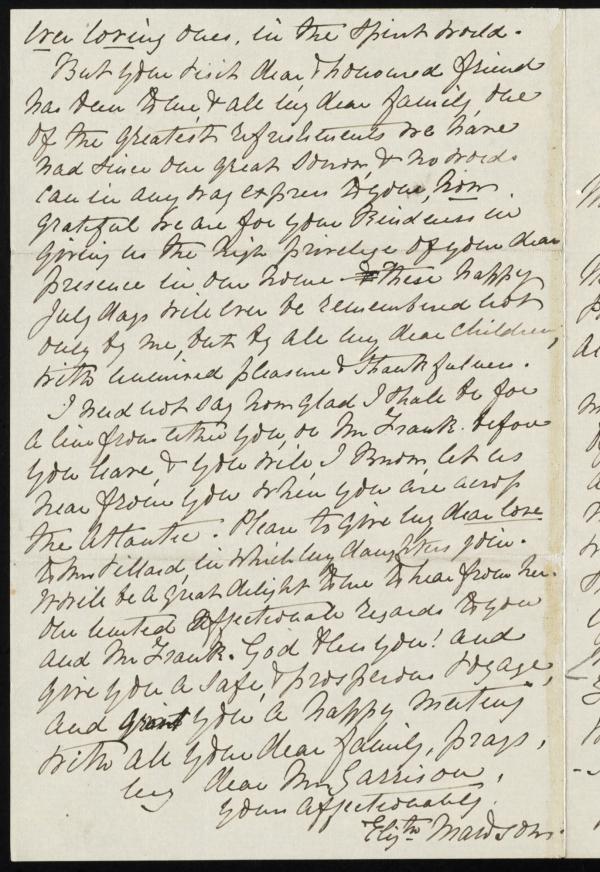 ever loving ones, in the Spirit world.
But your visit dear, & honoured friend
has been to me & all my dear family, one
of the greatest refreshments we have
had since our great sorrow, & no words
can in any way express to you, how
grateful we are for your Kindness in
giving us the high privilege of your dear
presence in our home these happy
July days will ever be remembered not
only by me, but by all my dear children,
with unmixed pleasure & thankfulness.
I need not say how glad I shall be for
a line from either you, or Mr Frank. before
you leave, & you will, I Know, let us
hear from you when you are across
the Atlantic. Please to give my dear love
to Mrs Villard, in which my daughters join.
Will be a great delight to me to hear from her.
Our united affectionate regards to you
and Mr Frank. God bless you! and
give you a safe, & prosperous voyage,
and grant you a happy meeting
with all your dear family, prays,
my dear Mr Garrison,
yours affectionately.
Elizth Mawson.